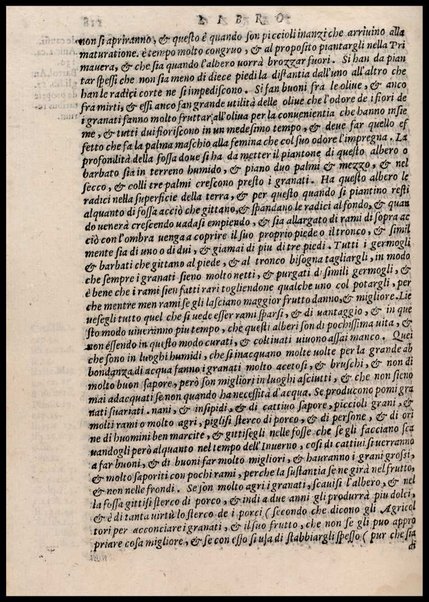 LIBRO
non si apriranno, & questo è quando son piccioli inanzi che arriuino alla
maturatione. è tempo molto congruo, & al proposito piantargli nella Pri
mauera, & che sia quando l'albero uorrà brozzar fuori. Si han da pian
tar spessi che non sia meno di diece piedi la distantia dall'uno all'altro che
han le radici corte ne si impediscono. Si fan buoni fra le oliue, & anco
fra mirti, & essi anco fan grande utilità delle oliue che l'odore de i fiori de
i granati fanno molto fruttar all'oliua per la conuenientia che hanno insie
me, & tutti dui fioriscono in un medesimo tempo, & deue far quello ef
fetto che fa la palma maschio alla femina che col suo odore l'impregna. La
profondità della fossa doue si ha da metter il piantone di questo albero o
barbato sia in terreno humido, & piano duo palmi & mezzo, & nel
secco, & colli tre palmi crescono presto i granati. Ha questo albero le
radici nella superficie della terra, & per questo quando si piantino resti
alquanto di fossa acciò che gittano, & spandano le radici al fondo, & quan
do uenerà crescendo uadasi empiendo, & sia allargato di rami di sopra ac
ciò con l'ombra uenga a coprire il suo proprio piede o il tronco, & simil
mente sia di uno o di dui, & giamai di piu di tre piedi. Tutti i germogli
& barbati che gittano al piede, & al tronco bisogna tagliargli, in modo
che sempre i granati sieno molto netti, & purgati di simili germogli, &
è bene che i rami sien fatti rari togliendone qualche uno col potargli, per
che mentre men rami se gli lasciano maggior frutto danno, & migliore. Lie
uesegli tutto quel che si uede esser rami sparsi, & di uantaggio, & in que
sto modo uiueranno piu tempo, che questi alberi son di pochissima uita, &
non essendo in questo modo curati, & coltiuati uiuono assai manco. Quei
che sono in luoghi humidi, che si inacquano molte uolte per la grande ab
bondanza di acqua fanno i granati molto acetosi, & bruschi, & non di
molto buon sapore, però son migliori in luoghi asciutti, & che non sieno
mai adacquati se non quando ha necessità d'acqua. Se producono pomi gra
nati suariati. nani, & insipidi, & di cattiuo sapore, piccioli grani, &
molti rami o molto agri, piglisi sterco di porco, & di persone, & di ori
ne di huomini ben marcite, & gittisegli nelle fosse che se gli facciano sca
uandogli però alquanto nel tempo dell'Inuerno, cosi di cattiui si uerranno
a far buoni, & di buoni far molto migliori, & hauranno i grani grossi,
& molto saporiti con pochi rami, perche la sustantia se ne girà nel frutto,
& non nelle frondi. Se son molto agri i granati, scauisi l'albero, & nel
la fossa gittisi sterco di porco, & indi a due anni gli produrrà piu dolci,
& è di tanta uirtù lo sterco de i porci (secondo che dicono gli Agricol
tori per acconciare i granati, & il suo frutto, che non se gli puo appro
priare cosa migliore, & se con esso si usa di stabbiargli spesso ( pur che sia
di